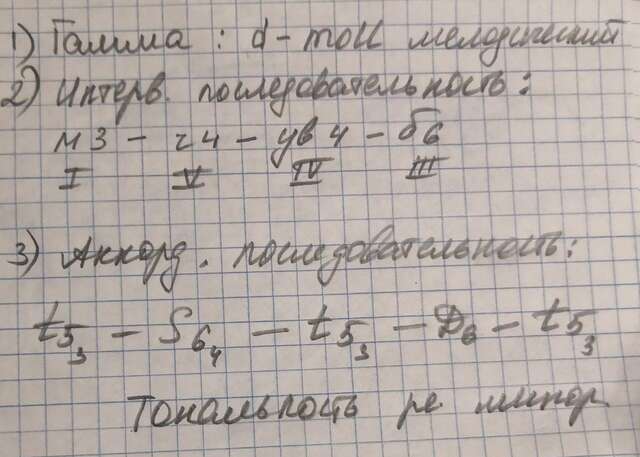 1) Гамма: d-moll мелодический
2) Интерв. последовательность:
м3 - ч4 - ув4 - б6
I V IV III
3) Аккорд. последовательность:
t5/3 - S6/4 - t5/3 - D6 - t5/3
Тональность ре минор